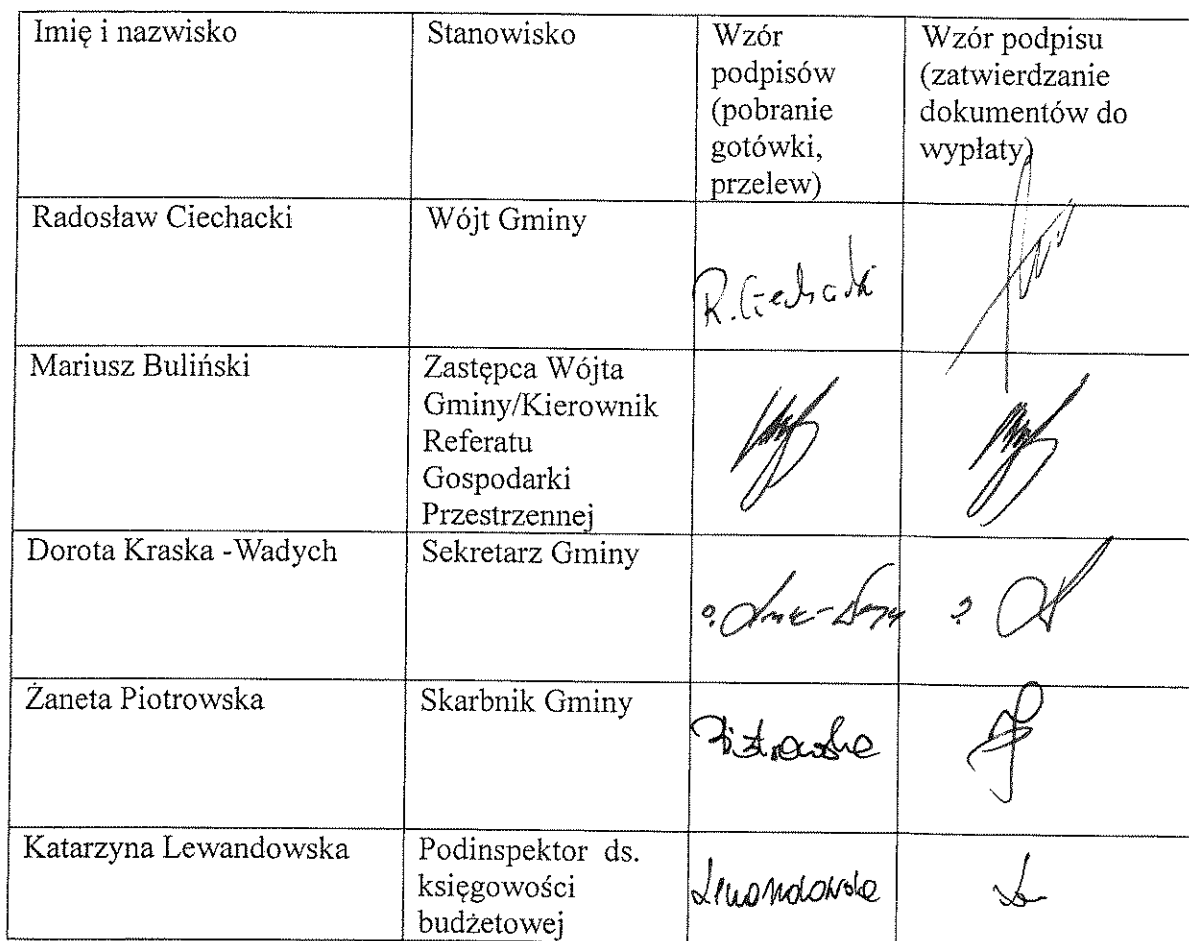 Imię i nazwisko
Stanowisko
Wzór
podpisów
(pobranie
gotówki,
przelew)
Wzór podpisu
(zatwierdzanie
dokumentów do
wypłaty)
Radosław Ciechacki
Wójt Gminy
R. Ciechacki
Mariusz Buliński
Zastępca Wójta
Gminy/Kierownik
Referatu
Gospodarki
Przestrzennej
Dorota Kraska -Wadych
Sekretarz Gminy
Żaneta Piotrowska
Skarbnik Gminy
Piotrowska
Katarzyna Lewandowska
Podinspektor ds.
księgowości
budżetowej
Lewandowska